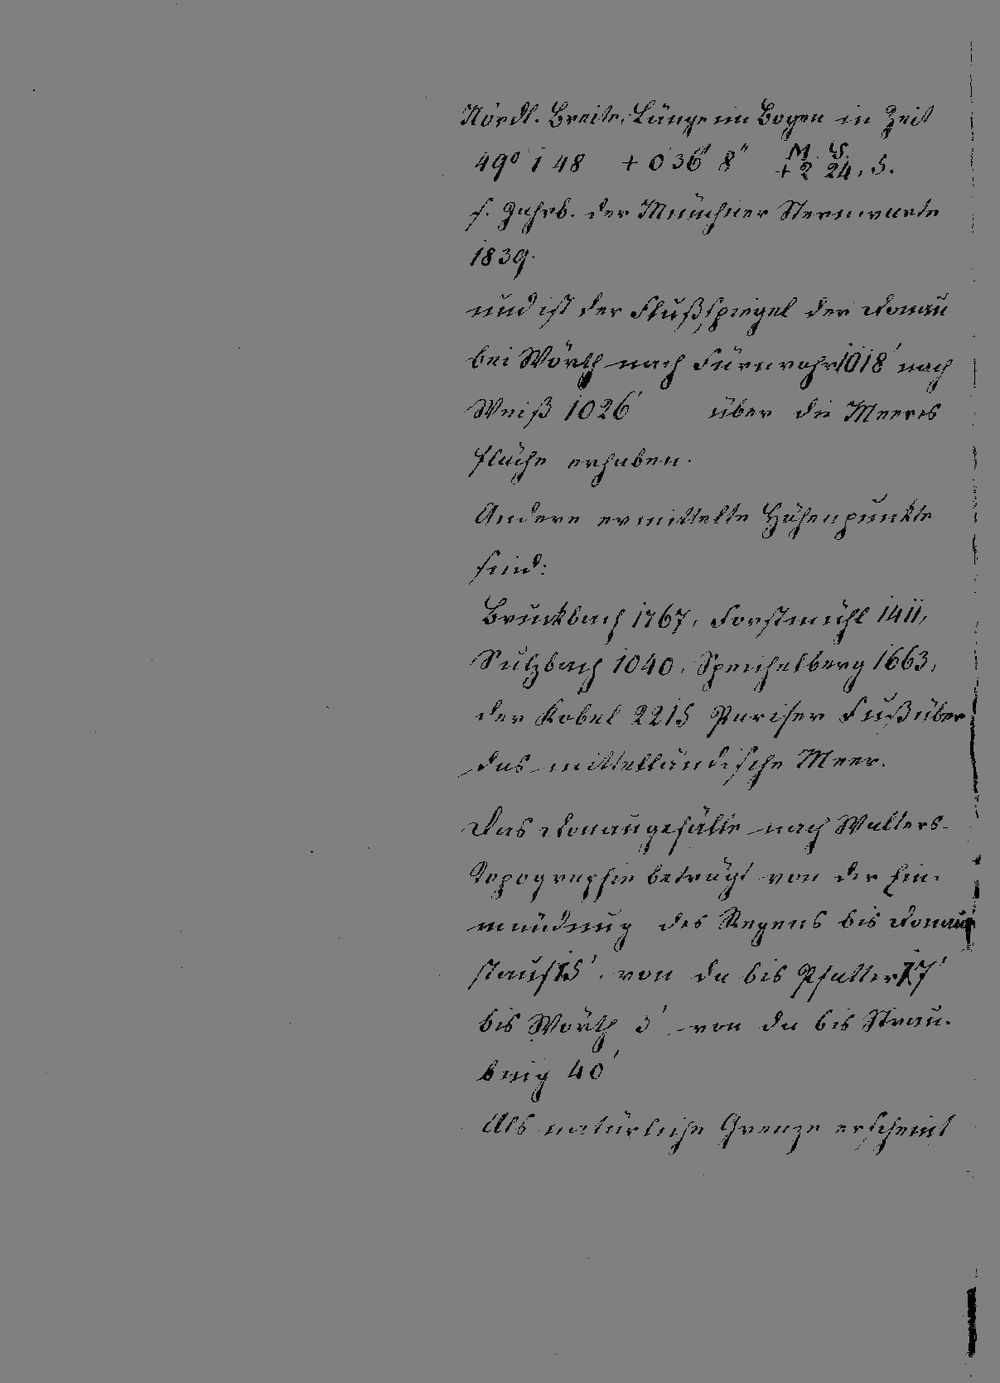 Nördl. Breite, Länge im Bogen in Zeit
49° 1 48 + 0 36' 8" + 2 M. 24, 5. S.
s. Jahrb. der Münchner Sternwarte
1839.
und ist der Flußspiegel der Donau
bei Wörth nach Fürnrohr 1018' nach
Weiß 1026' über die Meeres
fläche erhaben.
Andere ermittelte Höhenpunkte
sind:
Bruckbach 1767, Forstmühl 1411,
Sulzbach 1040, Speichelberg 1663,
der Kobel 2215 Pariser Fuß über
das mittelländische Meer.
Das Donaugefälle nach Walters
Topographie beträgt von der Ein-
mündung des Regens bis Donau
stauf 15', von da bis Pfatter 17'
bis Wörth 3' von da bis Strau-
bing 40'
Als natürliche Grenze erscheint